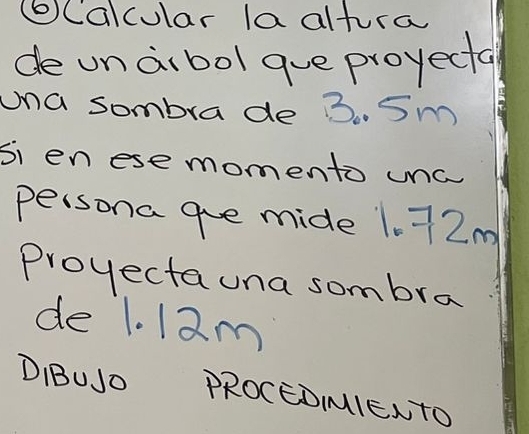 ⑥Calcular la altura
de un árbol que proyecta
una sombra de 3..5m
si en ese momento una
persona que mide 1.72m
proyecta una sombra
de 1.12m
DIBUJO PROCEDIMIENTO